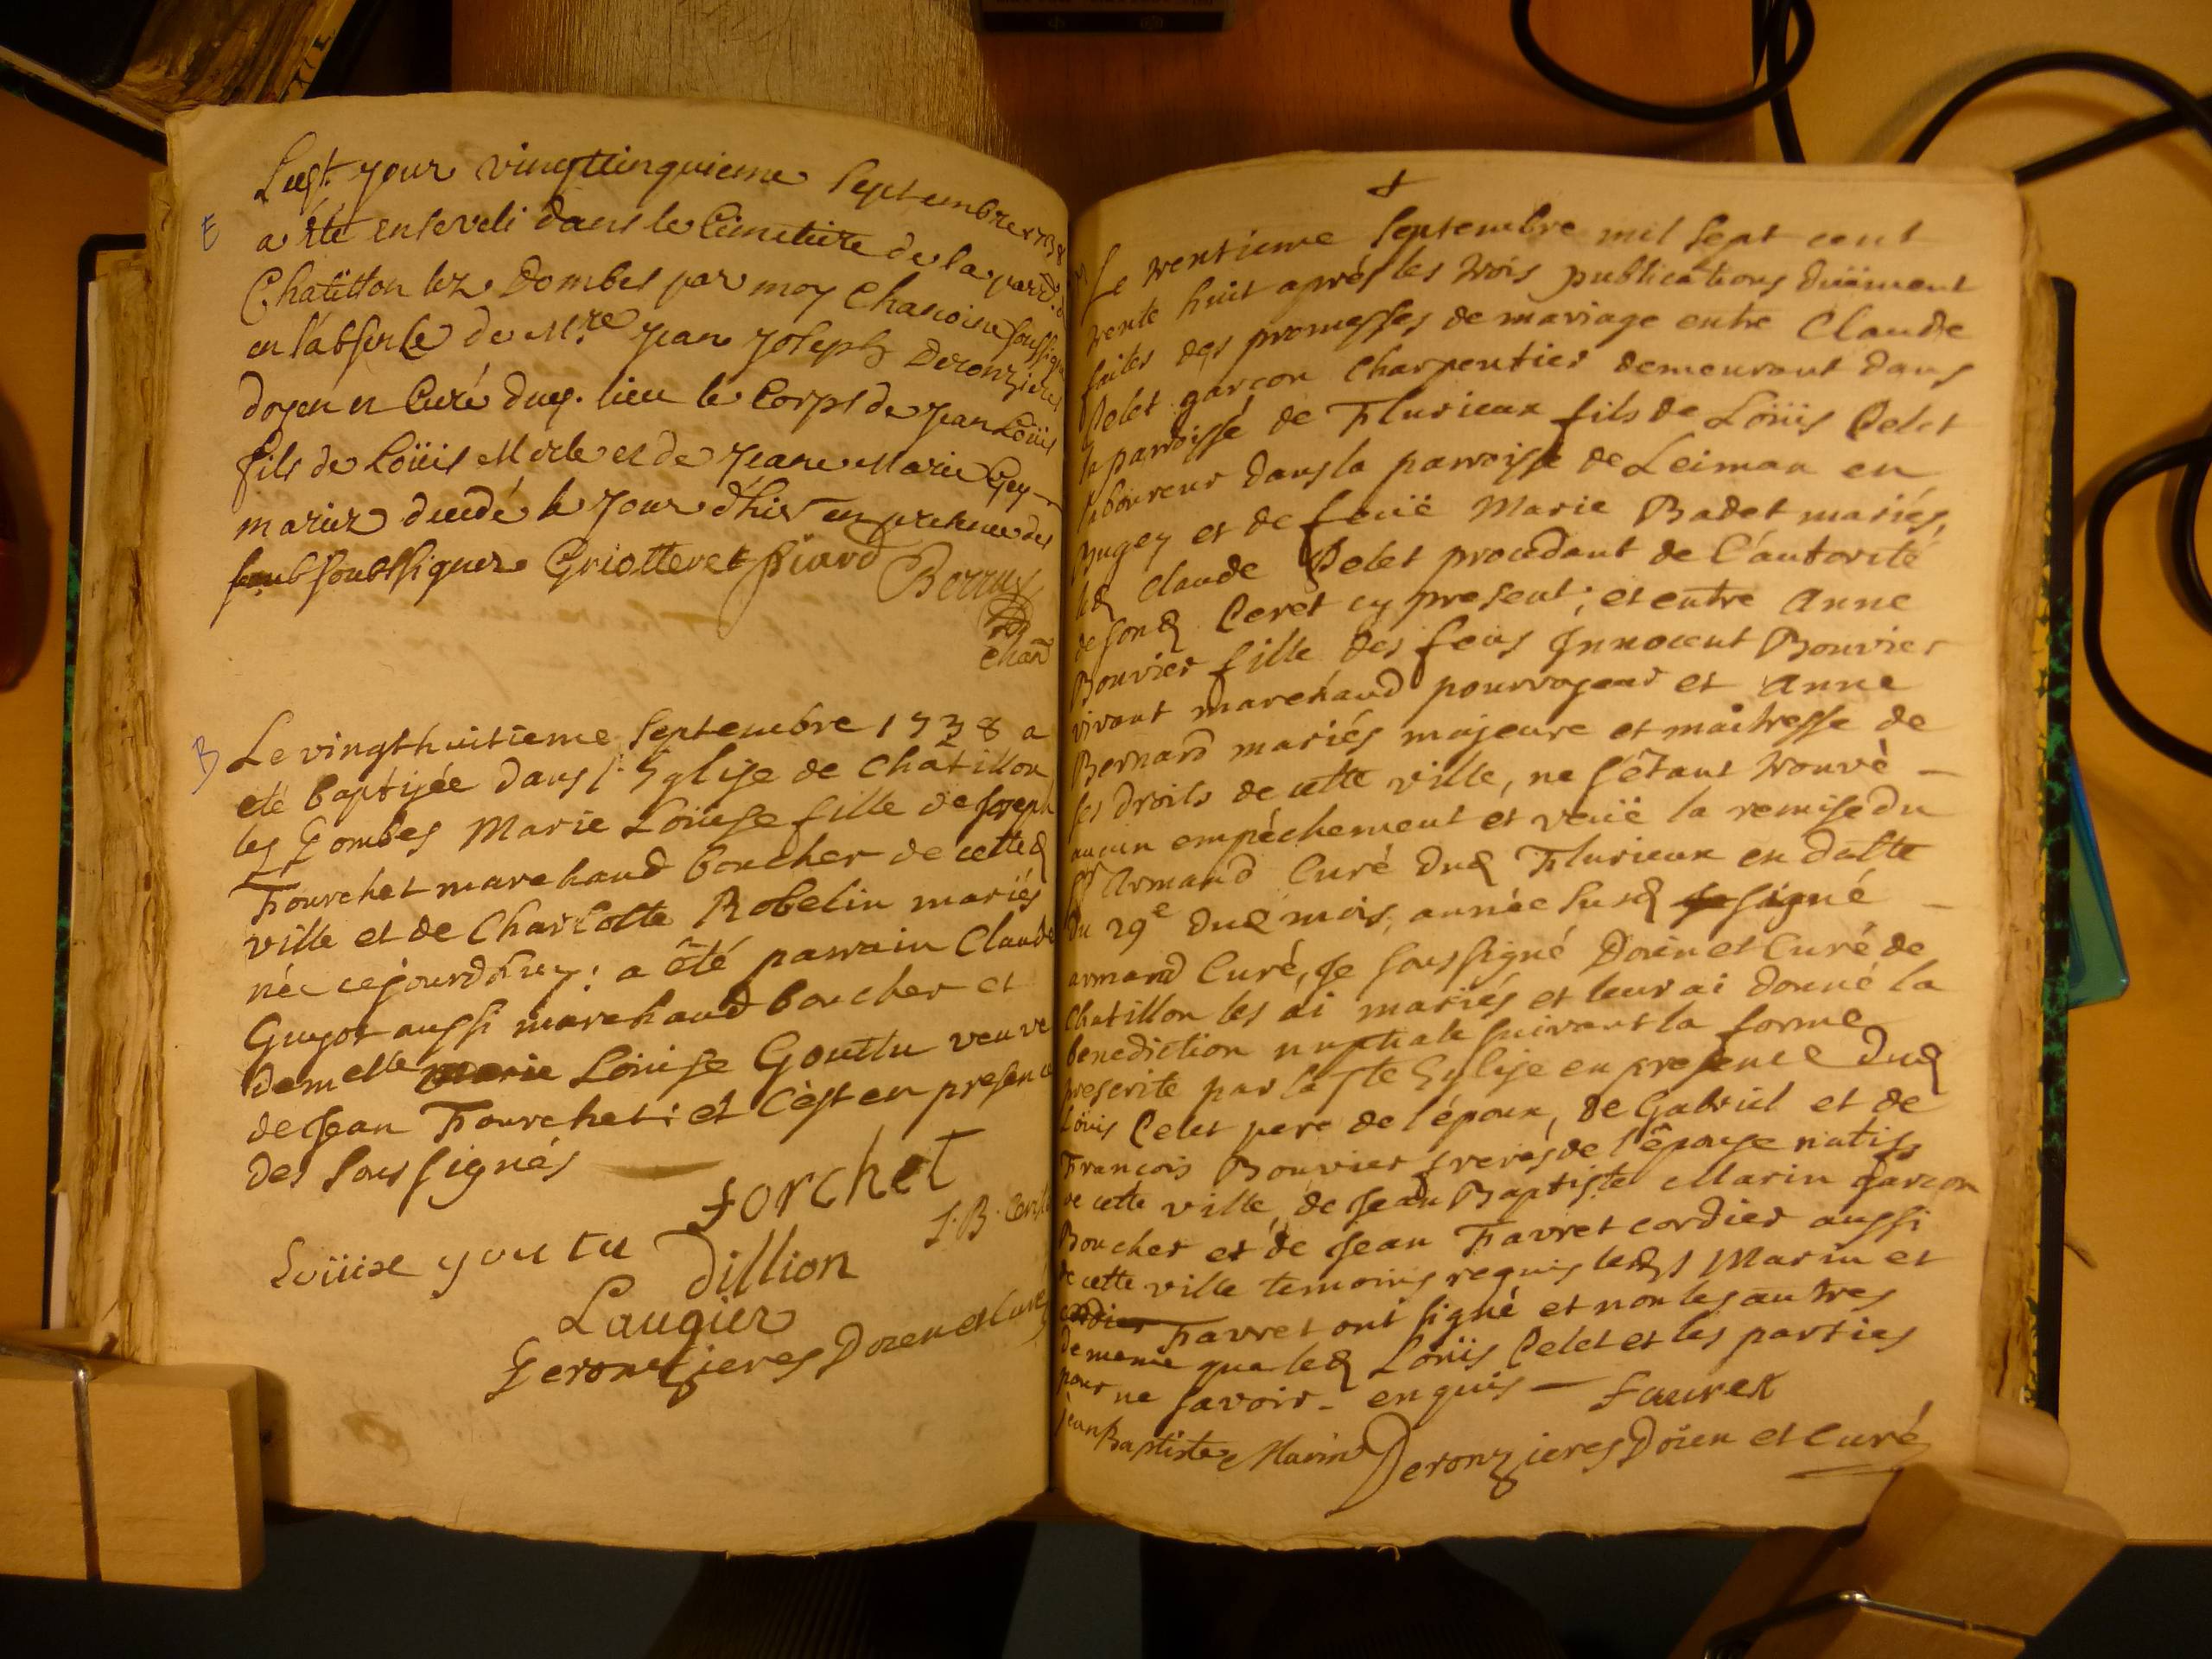 E
Lesd. jour vingtcinquieme Septembre 1738
a été enseveli dans le Cimetiere de la parr.
Chatillon lez Dombes par moy Chanoine soussigné
en l'absence de Mre Jean Joseph Deronzieres
doyen et Curé dud. lieu le Corps de Jean Loüis
fils de Loüis Merle et de Jeane Marie Gey-
marier decedé le jour d'hier en presence des
soubsoubsignez Griotteret piard Berruy
chan
B
Le vingthuitieme Septembre 1738 a
eté baptisée dans l'Eglise de Châtillon
les Dombes Marie Loüise fille de Joseph
Fourchet marchand boucher de cetted
ville et de Charlotte Robelin mariés
née cejourdhuy: a été parrain Claude
Guyot aussi marchand boucher et
demelle marie Loüise Gouttu veuve
de Jean Fourchet: et c'est en presence
des soussignés
forchet
J. B.
Loüise goutu Dillion
Laugier
Deronzieres Doien et Curé
†
Le trentieme Septembre mil sept cent
trente huit aprés les trois publications düement
faites des promesses de mariage entre Claude
Pelet garçon Charpentier demeurant dans
la parroisse de Flurieux fils de Loüis Pelet
laboureur dans la parroisse de Leiman en
Bugey et de feüe Marie Badet mariés,
led Claude Pelet procedant de l'autorité
de sond Peret cy present; et entre Anne
Bouvier fille des feus Innocent Bouvier
vivant marchand pourvoyeur et Anne
Bernard mariés majeure et maitresse de
ses droits de cette ville, ne s'étant trouvè -
aucun empéchement et veüe la remise du
Sr Armand Curé dud Flurieux en datte
du 29e dud mois, année susd signé -
armand Curé, Je soussigné Doien et Curé de
Chatillon les ai mariés et leur ai donné la
benediction nuptiale suivant la forme
prescrite par la Ste Eglise en presence dud
Loüis Pelet pere de l'époux, de Gabriel et de
François Bouvier freres de l'épouse natifs
de cette ville, de Jean Baptiste Marin garçon
Boucher et de Jean Favret cordier aussi
de cette ville temoins requis lesds Marin et
cordier Favret ont signé et non les autres
de meme que led Loüis Pelet et les parties
pour ne savoir - enquis - faurex
jean Baptiste Marin Deronzieres Doien et Curé